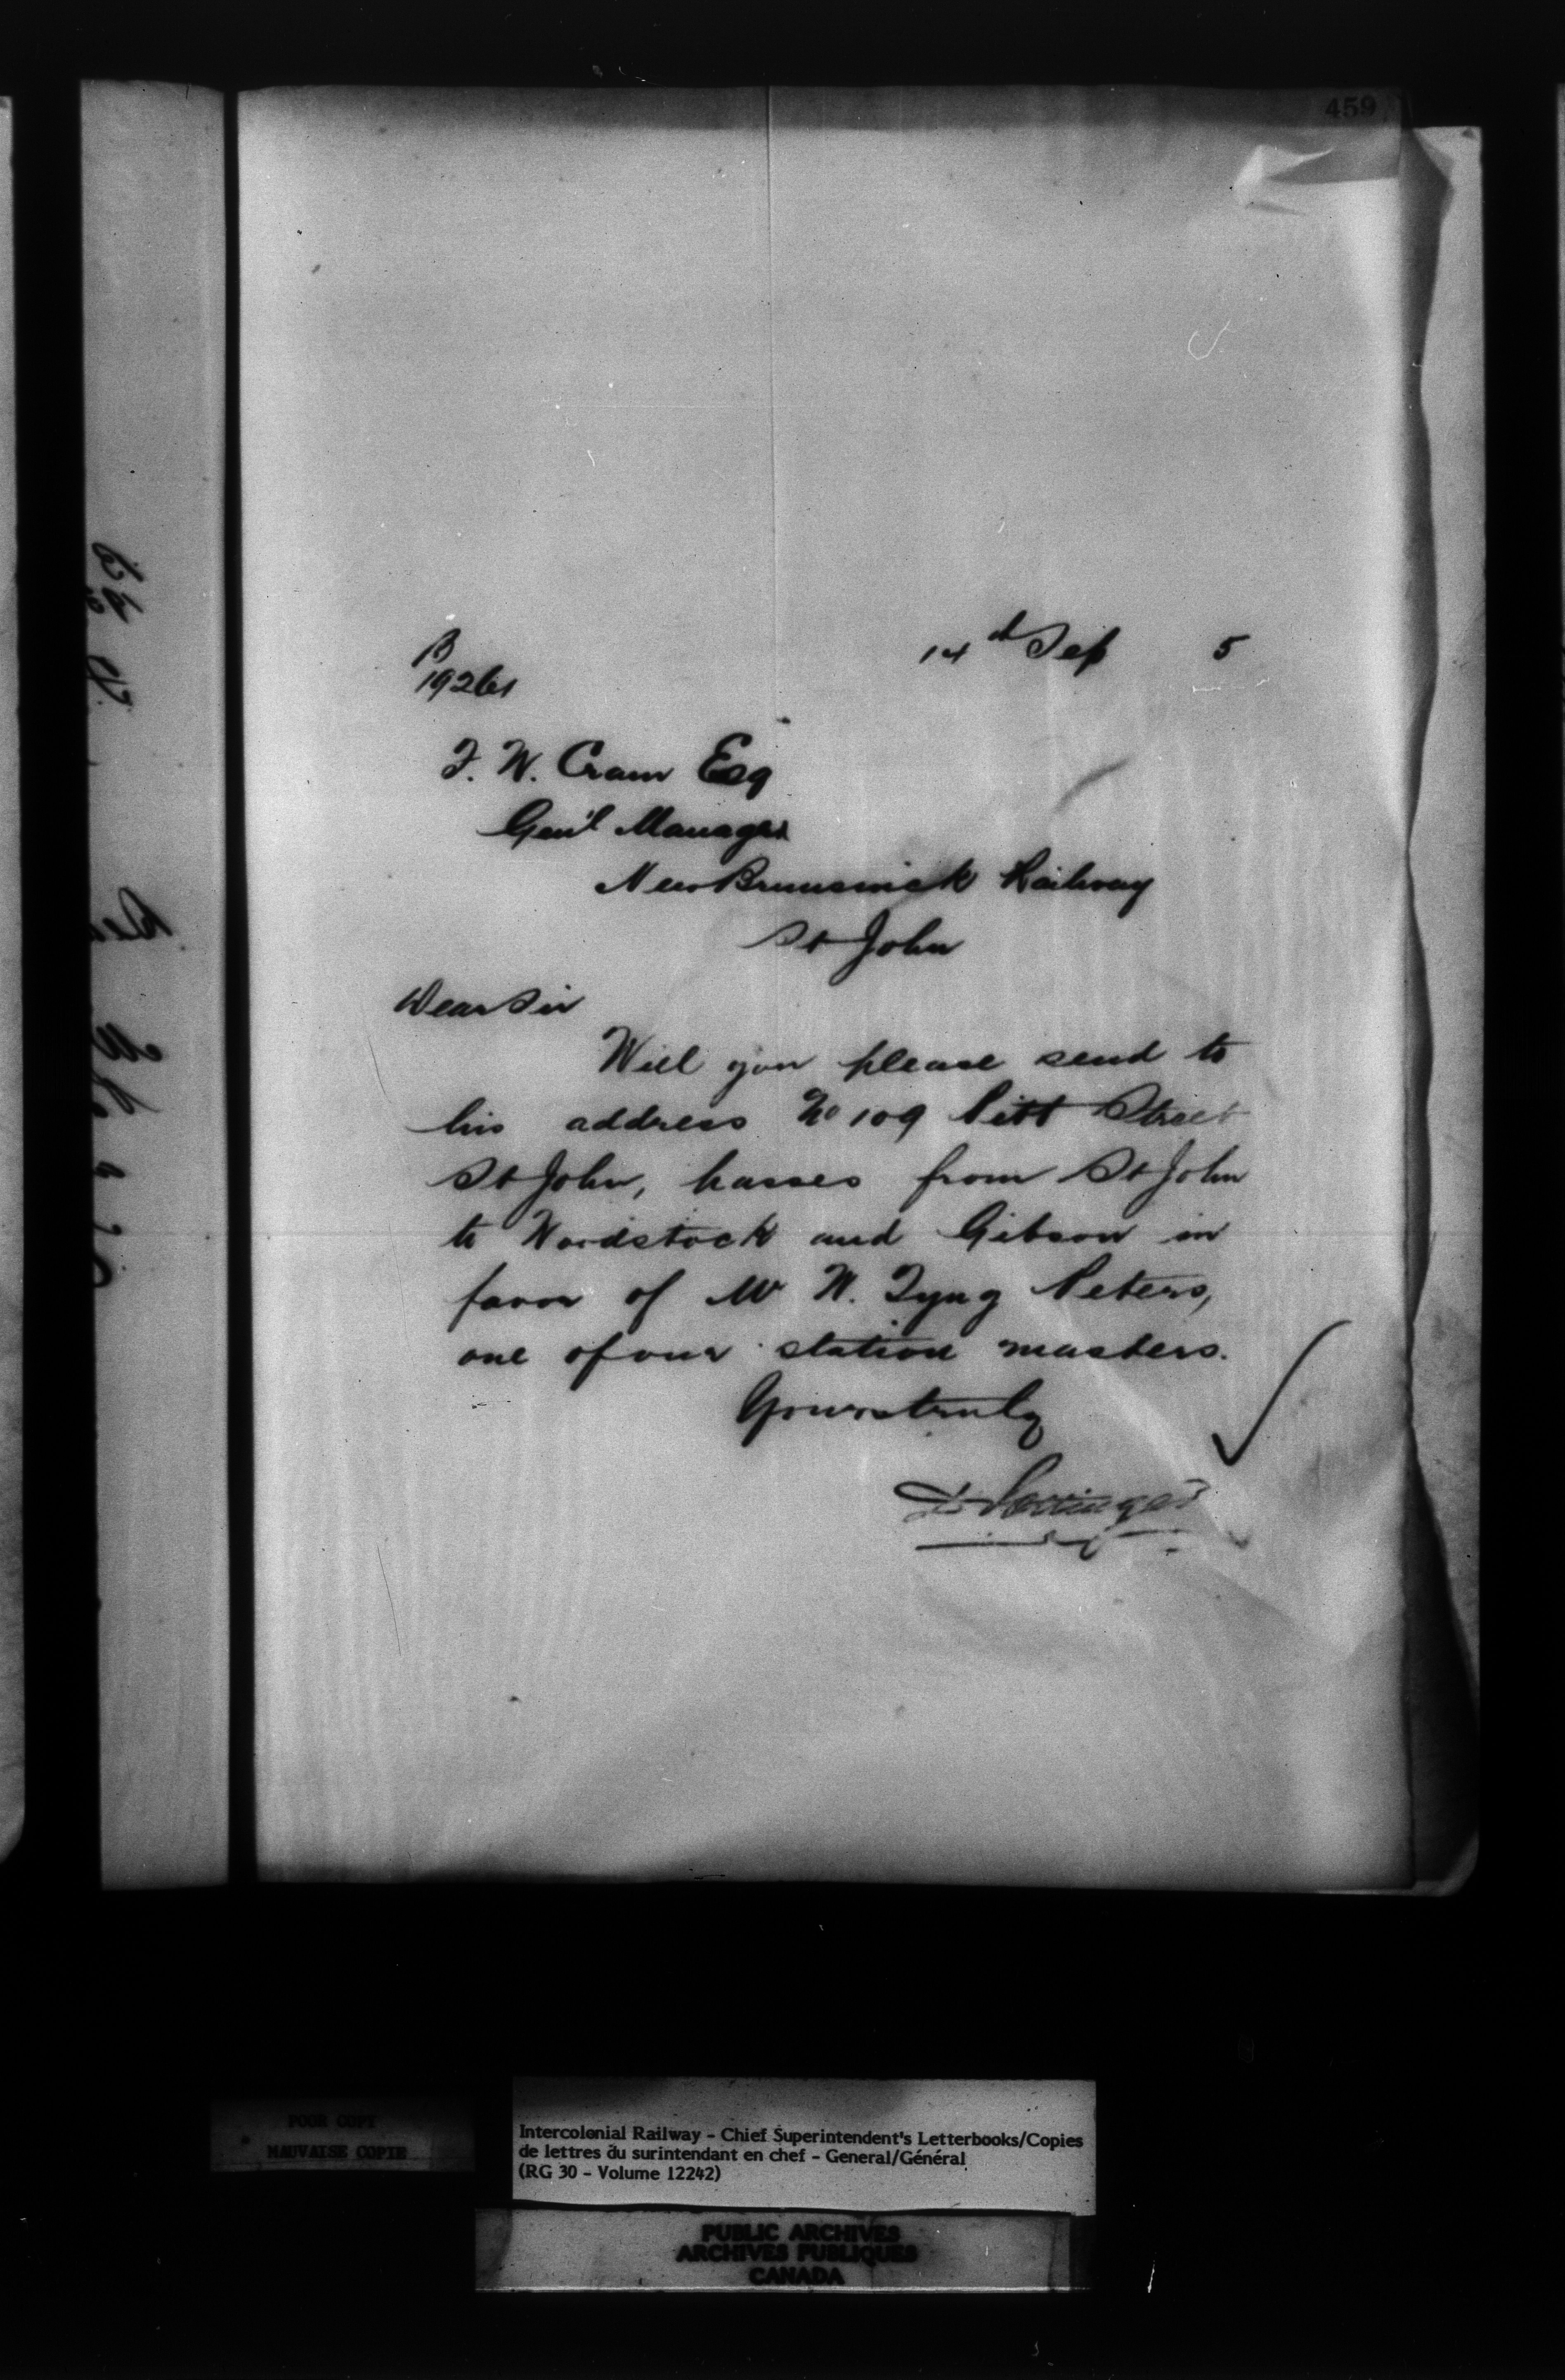 459
B
19261
14th Sep 5
F. W. Cram Esq
Gen'l Manager
New Brunswick Railway
St John
Dear Sir
Will you please send to
his address No 109 Pitt Street
St John, passes from St John
to Woodstock and Gibson in
favor of Mr W. Tyng Peters,
one of our station masters.
Yours truly
D Pottinger
POOR COPY
MAUVAISE COPIE
Intercolonial Railway - Chief Superintendent's Letterbooks/Copies
de lettres du surintendant en chef - General/Général
(RG 30 - Volume 12242)
PUBLIC ARCHIVES
ARCHIVES PUBLIQUES
CANADA